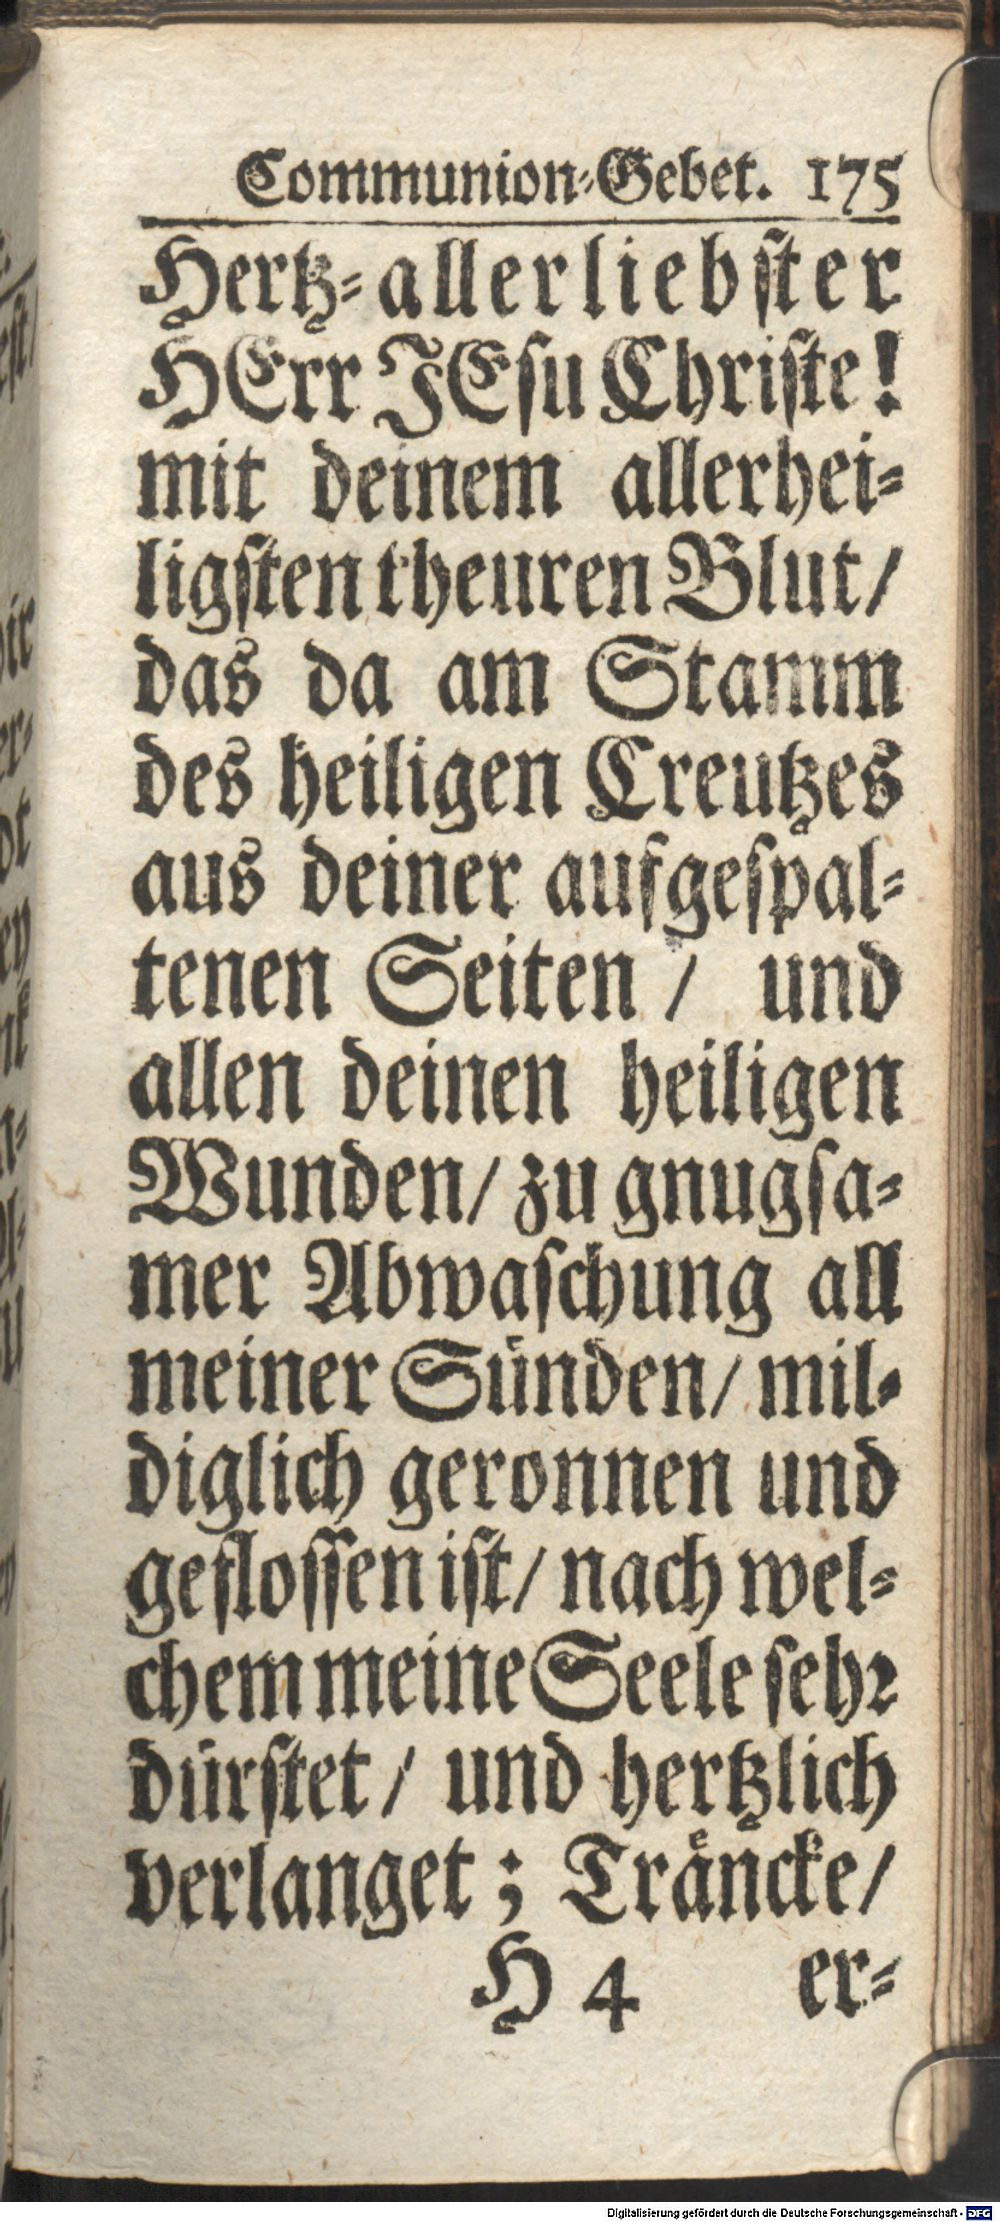 Communion-Gebet. 175
Hertz-allerliebster
HErr JEsu Christe!
mit deinem allerhei-
ligsten theuren Blut/
das da am Stamm
des heiligen Creutzes
aus deiner aufgespal-
tenen Seiten / und
allen deinen heiligen
Wunden/ zu gnugsa-
mer Abwaschung all
meiner Sünden/ mil-
diglich geronnen und
geflossen ist/ nach wel-
chem meine Seele sehr
dürstet/ und hertzlich
verlanget; Träncke/
H 4 er-
Digitalisierung gefördert durch die Deutsche Forschungsgemeinschaft - DFG